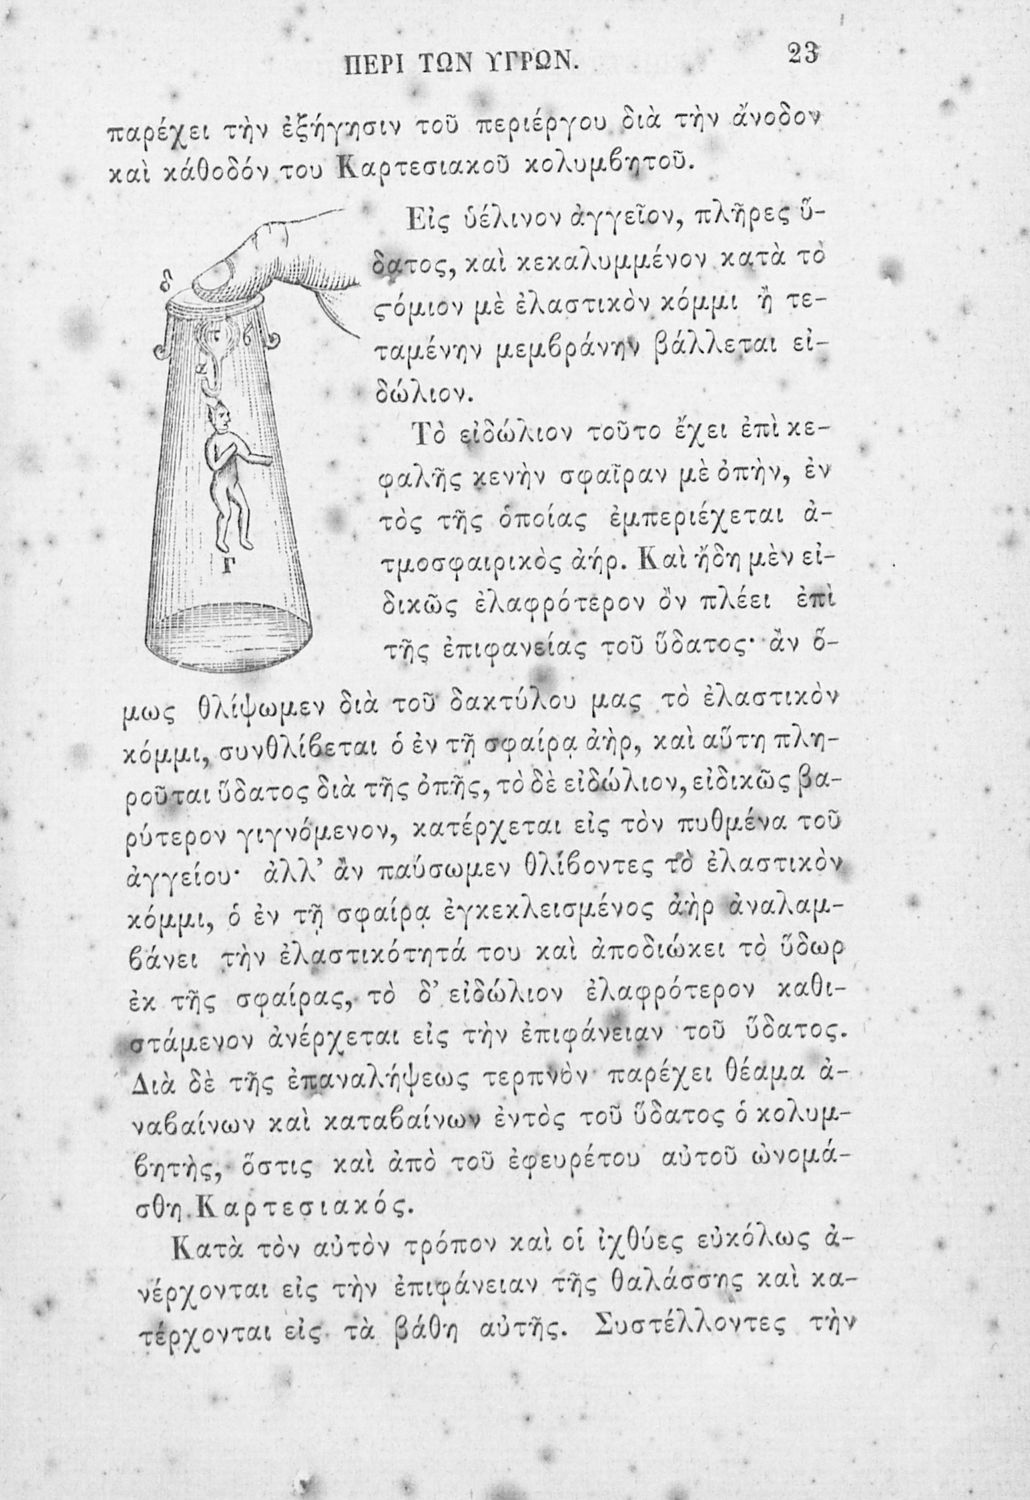 ΠΕΡΙ ΤΩΝ ΥΓΡΩΝ. 23
παρέχει τὴν ἐξήγησιν τοῦ περιέργου διὰ τὴν ἄνοδον
καὶ κάθοδόν του Καρτεσιακοῦ κολυμϐητοῦ.
Εἰς ὑέλινον ἀγγεῖον, πλῆρες ὕ-
δατος, καὶ κεκαλυμμένον κατὰ τὸ
ϛόμιον μὲ ἐλαστικὸν κόμμι ἢ τε-
ταμένην μεμϐράνην βάλλεται εἰ-
δώλιον.
Τὸ εἰδώλιον τοῦτο ἔχει ἐπὶ κε-
φαλῆς κενὴν σφαῖραν μὲ ὀπὴν, ἐν
τὸς τῆς ὁποίας ἐμπεριέχεται ἀ-
τμοσφαιρικὸς ἀήρ. Καὶ ἤδη μὲν εἰ-
δικῶς ἐλαφρότερον ὂν πλέει ἐπὶ
τῆς ἐπιφανείας τοῦ ὕδατος· ἂν ὅ-
μως θλίψωμεν διὰ τοῦ δακτύλου μας τὸ ἐλαστικὸν
κόμμι, συνθλίϐεται ὁ ἐν τῇ σφαίρᾳ ἀὴρ, καὶ αὕτη πλη-
ροῦται ὕδατος διὰ τῆς ὀπῆς, τὸ δὲ εἰδώλιον, εἰδικῶς βα-
ρύτερον γιγνόμενον, κατέρχεται εἰς τὸν πυθμένα τοῦ
ἀγγείου· ἀλλ’ ἂν παύσωμεν θλίϐοντες τὸ ἐλαστικὸν
κόμμι, ὁ ἐν τῇ σφαίρᾳ ἐγκεκλεισμένος ἀὴρ ἀναλαμ-
ϐάνει τὴν ἐλαστικότητά του καὶ ἀποδιώκει τὸ ὕδωρ
ἐκ τῆς σφαίρας, τὸ δ’ εἰδώλιον ἐλαφρότερον καθι-
στάμενον ἀνέρχεται εἰς τὴν ἐπιφάνειαν τοῦ ὕδατος.
Διὰ δὲ τῆς ἐπαναλήψεως τερπνὸν παρέχει θέαμα ἀ-
ναϐαίνων καὶ καταϐαίνων ἐντὸς τοῦ ὕδατος ὁ κολυμ-
ϐητὴς, ὅστις καὶ ἀπὸ τοῦ ἐφευρέτου αὐτοῦ ὠνομά-
σθη Καρτεσιακός.
Κατὰ τὸν αὐτὸν τρόπον καὶ οἱ ἰχθύες εὐκόλως ἀ-
νέρχονται εἰς τὴν ἐπιφάνειαν τῆς θαλάσσης καὶ κα-
τέρχονται εἰς τὰ βάθη αὐτῆς. Συστέλλοντες τὴν
δ
τ ϐ
Γ